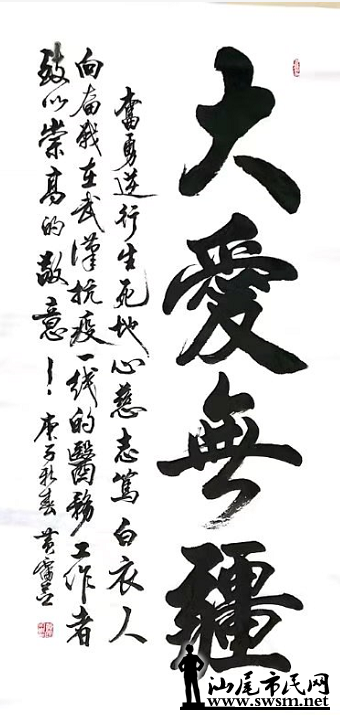 大愛無疆
奮勇逆行生死地心慈志篤白衣人
向奮戰在武漢抗疫一线的醫務工作者
致以崇高的敬意！庚子新春 黄
汕尾市民网
www.swsm.net